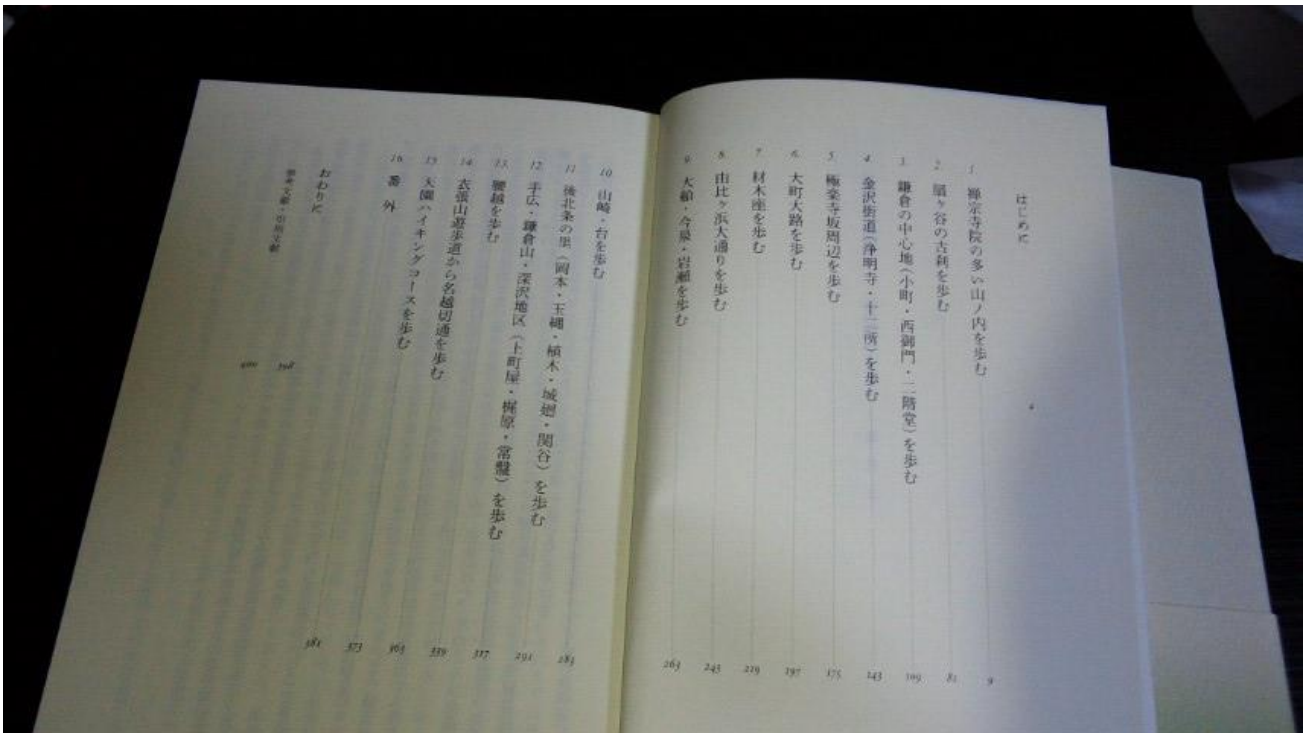 はじめに
1 禅宗寺院の多い山ノ内を歩む 9
2 扇ヶ谷の古刹を歩む 81
3 鎌倉の中心地(小町・西御門・二階堂)を歩む 109
4 金沢街道(浄明寺・十二所)を歩む 143
5 極楽寺坂周辺を歩む 175
6 大町大路を歩む 197
7 材木座を歩む 219
8 由比ヶ浜大通りを歩む 245
9 大船・今泉・岩瀬を歩む 263
10 山崎・台を歩む 283
11 後北条の里(岡本・玉縄・植木・城廻・関谷)を歩む 291
12 手広・鎌倉山・深沢地区(上町屋・梶原・常盤)を歩む 317
13 腰越を歩む 339
14 衣張山遊歩道から名越切通を歩む 363
15 天園ハイキングコースを歩む 373
16 番外 381
おわりに 398
参考文献・引用文献 400